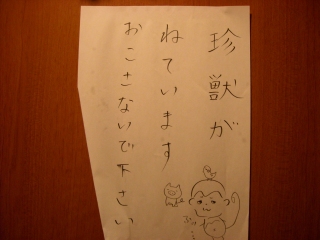 珍獣が
ねています
おこさないで下さい